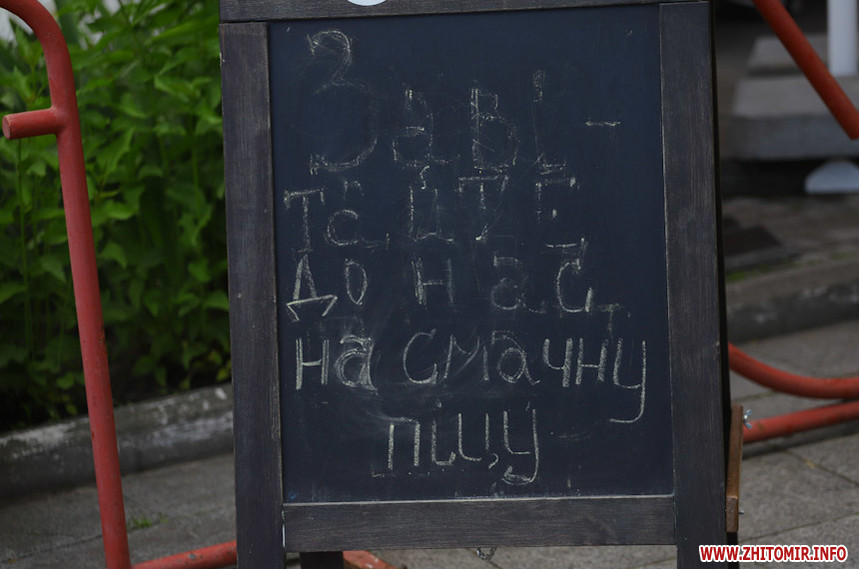 Заві-
тайте
до нас
на смачну
піцу
WWW.ZHITOMIR.INFO